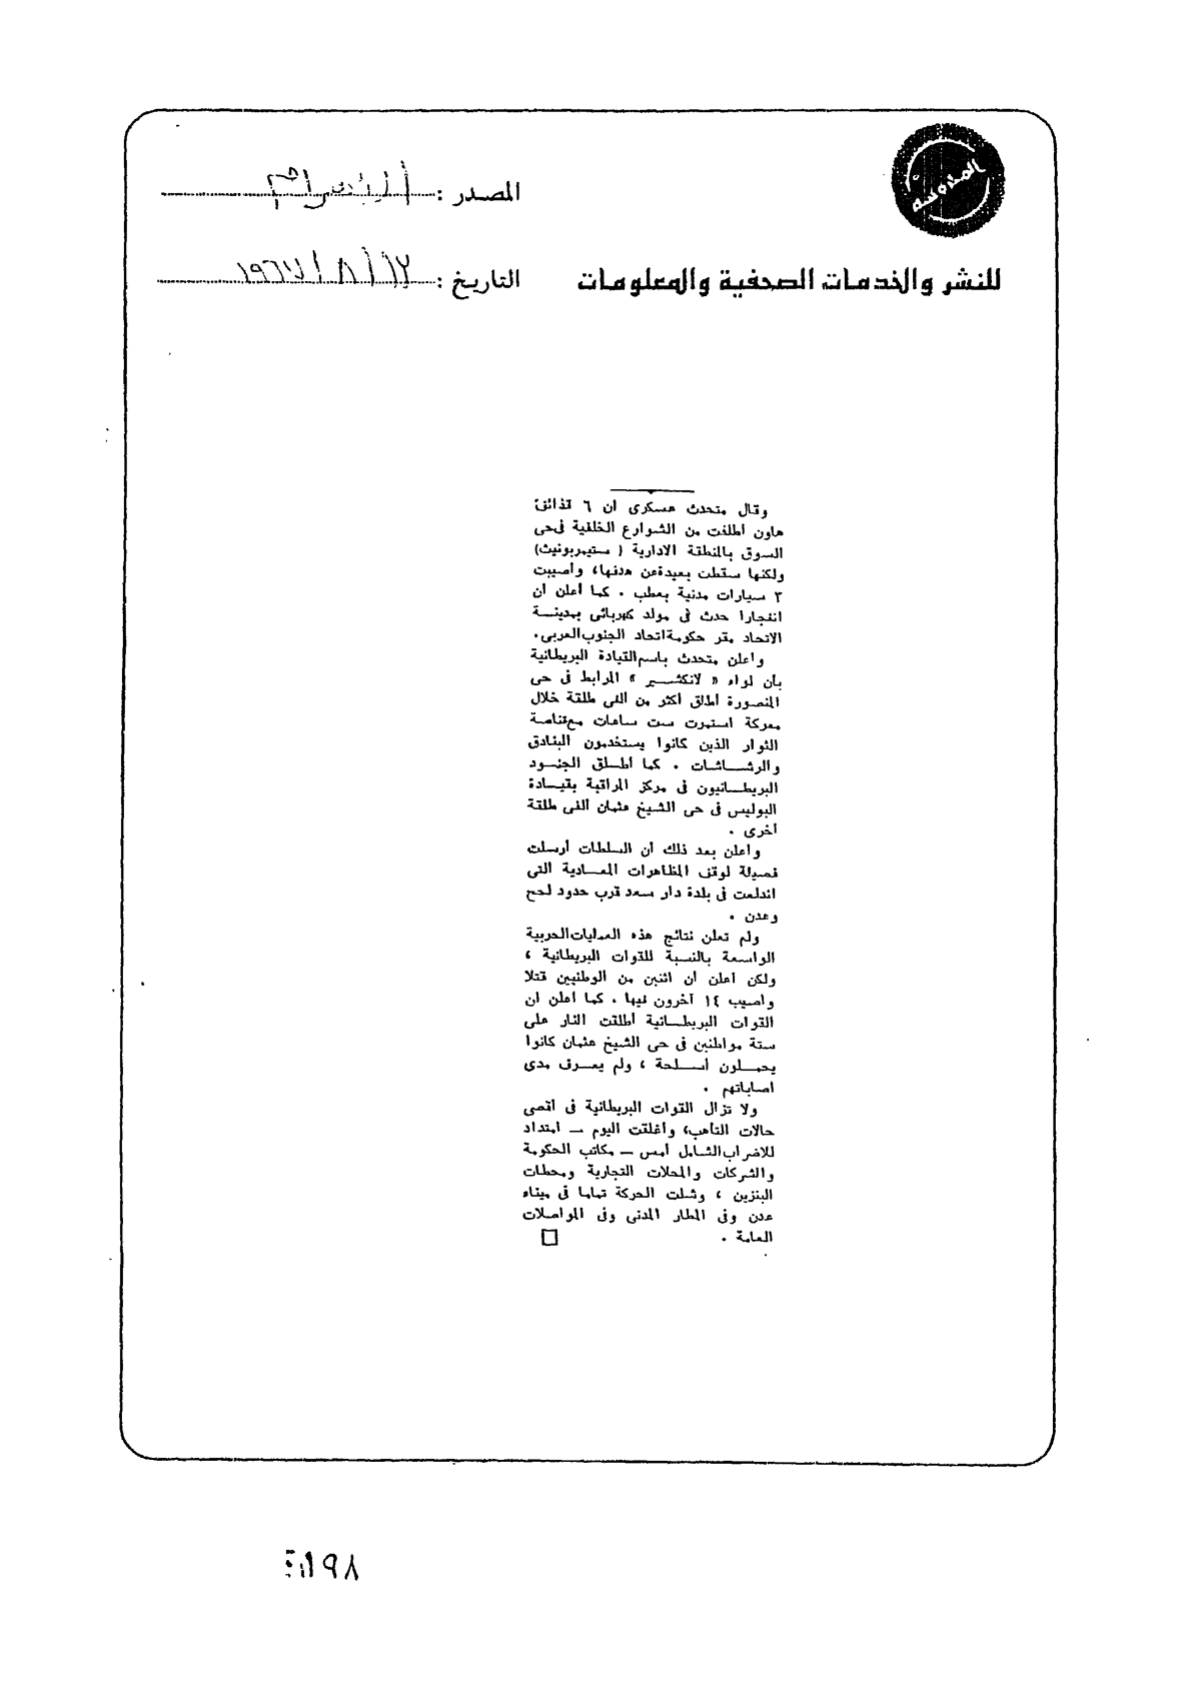 المصدر : الأهرام
التاريخ : ١٢ / ٨ / ١٩٦٧
للنشر والخدمات الصحفية والمعلومات
وقال متحدث عسكرى ان ٦ قذائف
هاون اطلقت من الشوارع الخلفية فى حى
السوق بالمنطقة الادارية ( ستيمربونيت )
ولكنها سقطت بعيدة عن هدفها ، واصيبت
٣ سيارات مدنية بعطب . كما أعلن ان
انفجارا حدث فى مولد كهربائى بمدينـــة
الاتحاد مقر حكومة اتحاد الجنوب العربى .
واعلن متحدث باسم القيادة البريطانية
بأن لواء « لانكشـــير » المرابط فى حى
المنصورة أطلق أكثر من الفى طلقة خلال
معركة استمرت ست ساعات مع قناصة
الثوار الذين كانوا يستخدمون البنادق
والرشـــاشات . كما أطـــلق الجنـــود
البريطـــانيون فى مركز المراقبة بقيـــادة
البوليس فى حى الشيخ عثمان الفى طلقة
اخرى .
واعلن بعد ذلك أن السلطات أرسلت
فصيلة لوقف المظاهرات المعـــادية التى
اندلعت فى بلدة دار سعد قرب حدود لحج
وعدن .
ولم تعلن نتائج هذه العمليات الحربية
الواسعة بالنسبة للقوات البريطانية ،
ولكن اعلن ان اثنين من الوطنيين قتلا
واصيب ١٤ آخرون فيها . كما اعلن ان
القوات البريطـــانية أطلقت النار على
ستة مواطنين فى حى الشيخ عثمان كانوا
يحمـــلون أســـلحة ، ولم يعـــرف مدى
اصاباتهم .
ولا تزال القوات البريطانية فى اقصى
حالات التأهب، وأغلقت اليوم — امتداد
للاضراب الشامل أمس — مكاتب الحكومة
والشركات والمحلات التجارية ومحطات
البنزين ، وشلت الحركة تماما فى ميناء
عدن وفى المطار المدنى وفى المواصلات
العامة .